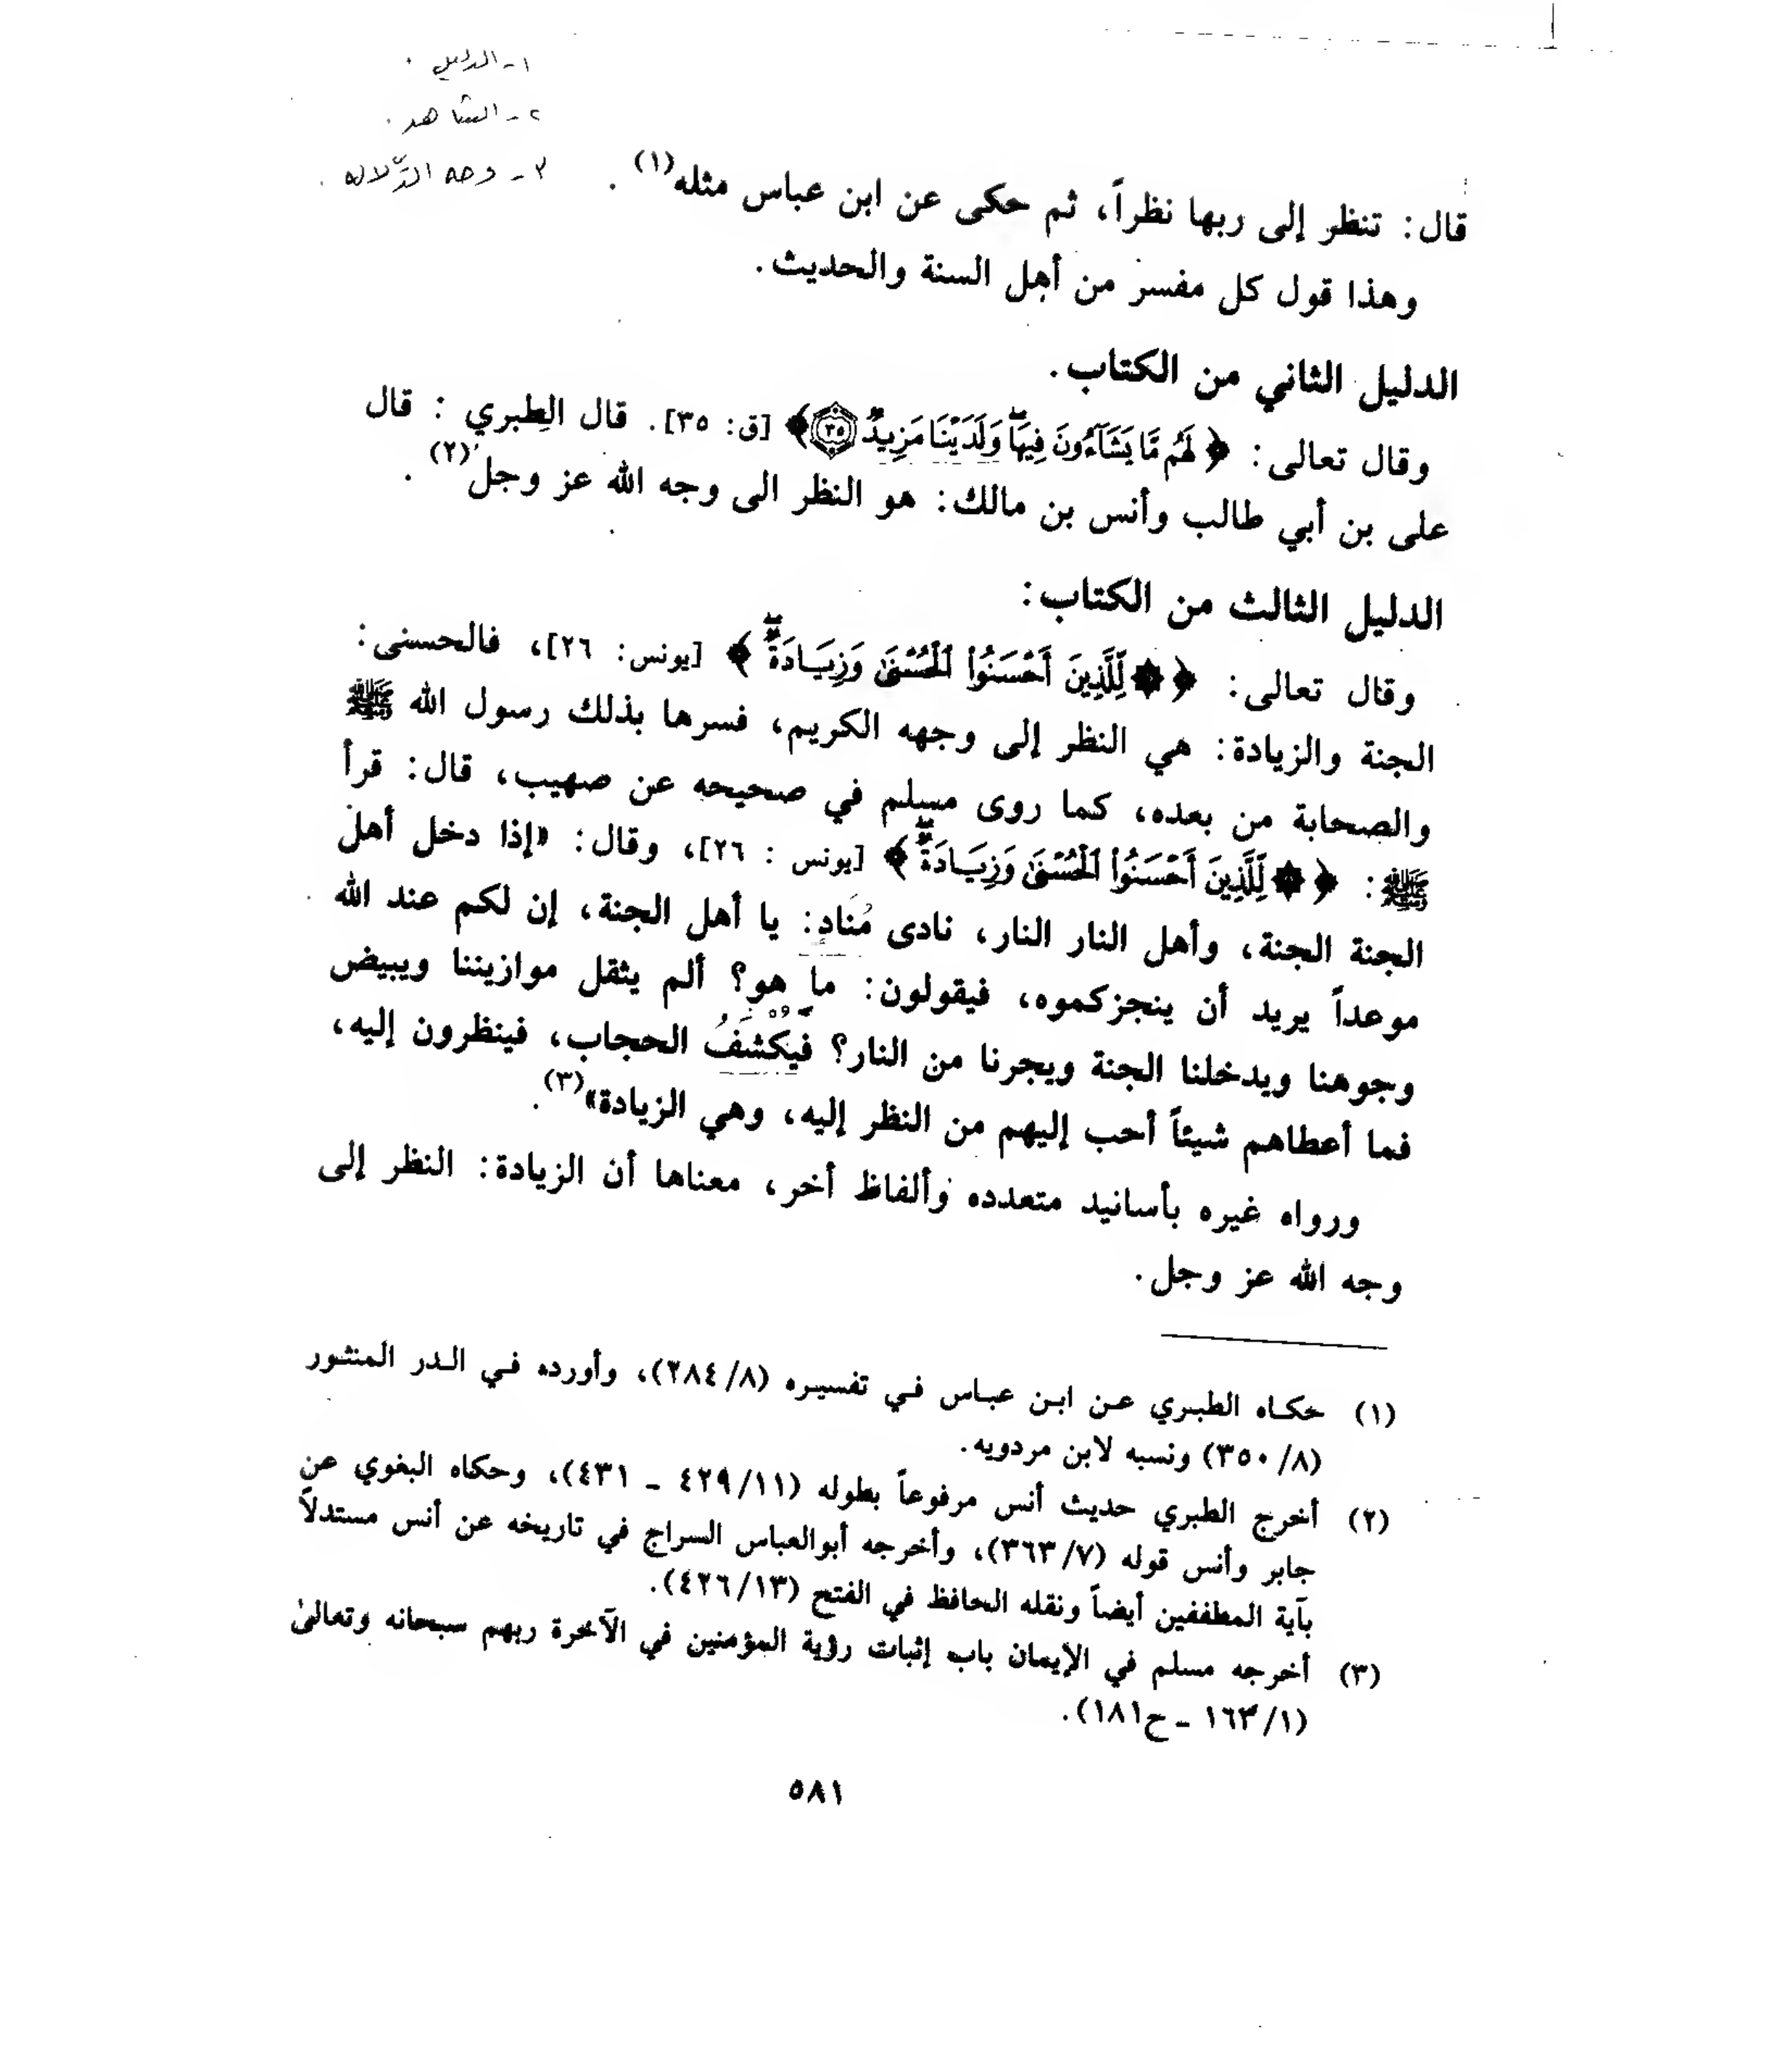 ١- الدليل.
٢- الشاهد.
٣- وجه الدّلاله.
قال: تنظر إلى ربها نظراً، ثم حكى عن ابن عباس مثله(١).
وهذا قول كل مفسر من أهل السنة والحديث.
الدليل الثاني من الكتاب.
وقال تعالى: ﴿لَهُم مَّا يَشَآءُونَ فِيهَاۖ وَلَدَيْنَا مَزِيدٌ ٣٥﴾ [ق: ٣٥]. قال الطبري : قال
على بن أبي طالب وأنس بن مالك: هو النظر الى وجه الله عز وجل(٢).
الدليل الثالث من الكتاب:
وقال تعالى: ﴿۞ لِّلَّذِينَ أَحْسَنُواْ ٱلْحُسْنَىٰ وَزِيَادَةٌۖ﴾ [يونس: ٢٦]، فالحسنى:
الجنة والزيادة: هي النظر إلى وجهه الكريم، فسرها بذلك رسول الله ﷺ
والصحابة من بعده، كما روى مسلم في صحيحه عن صهيب، قال: قرأ
ﷺ: ﴿۞ لِّلَّذِينَ أَحْسَنُواْ ٱلْحُسْنَىٰ وَزِيَادَةٌۖ﴾ [يونس : ٢٦]، وقال: «إذا دخل أهل
الجنة الجنة، وأهل النار النار، نادى مُنَادٍ: يا أهل الجنة، إن لكم عند الله
موعداً يريد أن ينجزكموه، فيقولون: ما هو؟ ألم يثقل موازيننا ويبيض
وجوهنا ويدخلنا الجنة ويجرنا من النار؟ فَيُكْشَفُ الحجاب، فينظرون إليه،
فما أعطاهم شيئاً أحب إليهم من النظر إليه، وهي الزيادة»(٣).
ورواه غيره بأسانيد متعدده وألفاظ أخر، معناها أن الزيادة: النظر إلى
وجه الله عز وجل.
(١) حكاه الطبري عن ابن عباس في تفسيره (٢٨٤/٨)، وأورده في الدر المنثور
(٣٥٠/٨) ونسبه لابن مردويه.
(٢) أخرج الطبري حديث أنس مرفوعاً بطوله (٤٢٩/١١ - ٤٣١)، وحكاه البغوي عن
جابر وأنس قوله (٣٦٣/٧)، وأخرجه أبوالعباس السراج في تاريخه عن أنس مستدلاً
بآية المطففين أيضاً ونقله الحافظ في الفتح (٤٢٦/١٣).
(٣) أخرجه مسلم في الإيمان باب إثبات رؤية المؤمنين في الآخرة ربهم سبحانه وتعالىٰ
(١٦٣/١ - ح١٨١).
٥٨١